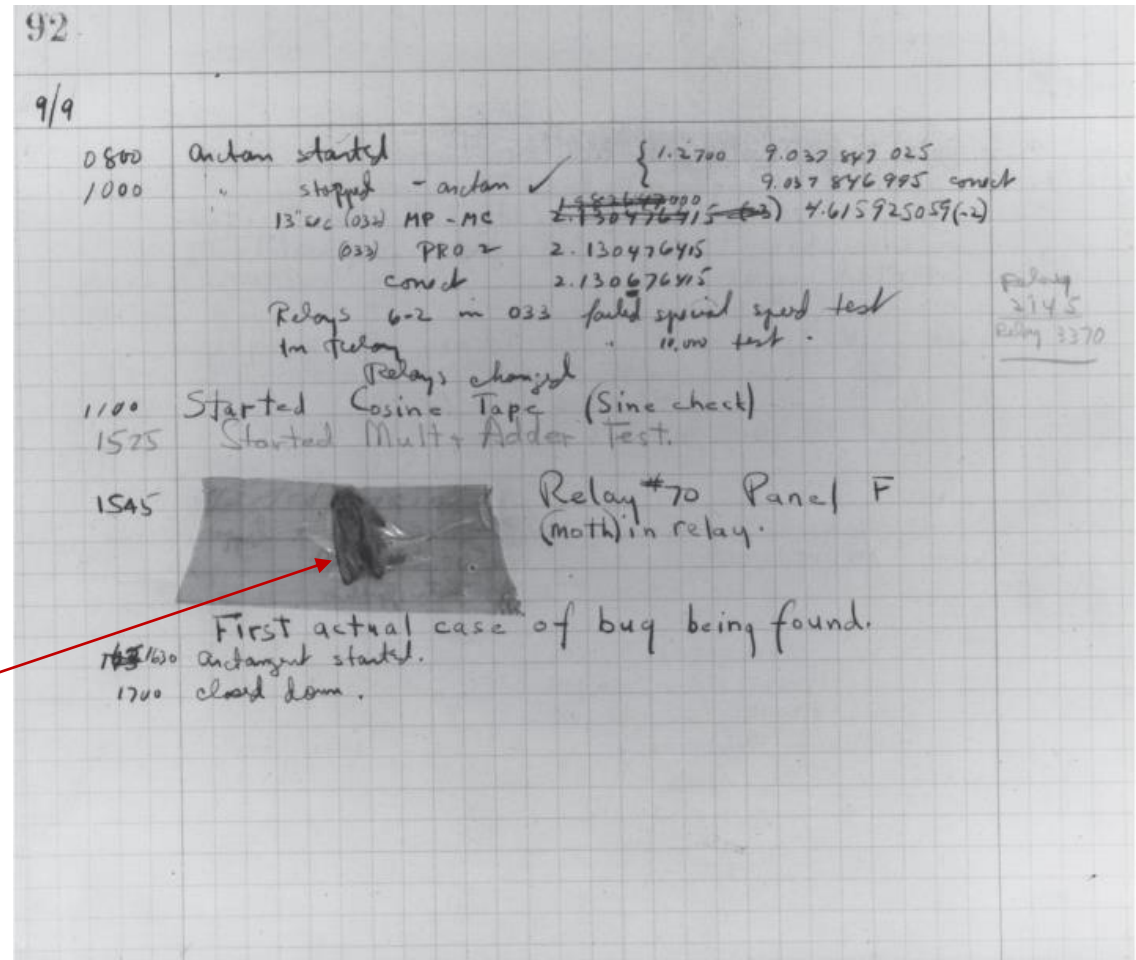 92
9/9
0800 arctan started { 1.2700 9.037 847 025
1000 " stopped - arctan ✓ 9.037 846 995 correct
13" (032) MP - MC 2.130476415 (-3) 4.615925059(-2)
(033) PRO 2 2.130476415
correct 2.130676415
Relays 6-2 in 033 failed special speed test
In Relay " 10,000 test .
Relay
2145
Relay 3370
Relays changed
1100 Started Cosine Tape (Sine check)
1525 Started Mult + Adder Test.
1545 Relay #70 Panel F
(moth) in relay.
First actual case of bug being found.
1630 arctangent started.
1700 closed down.